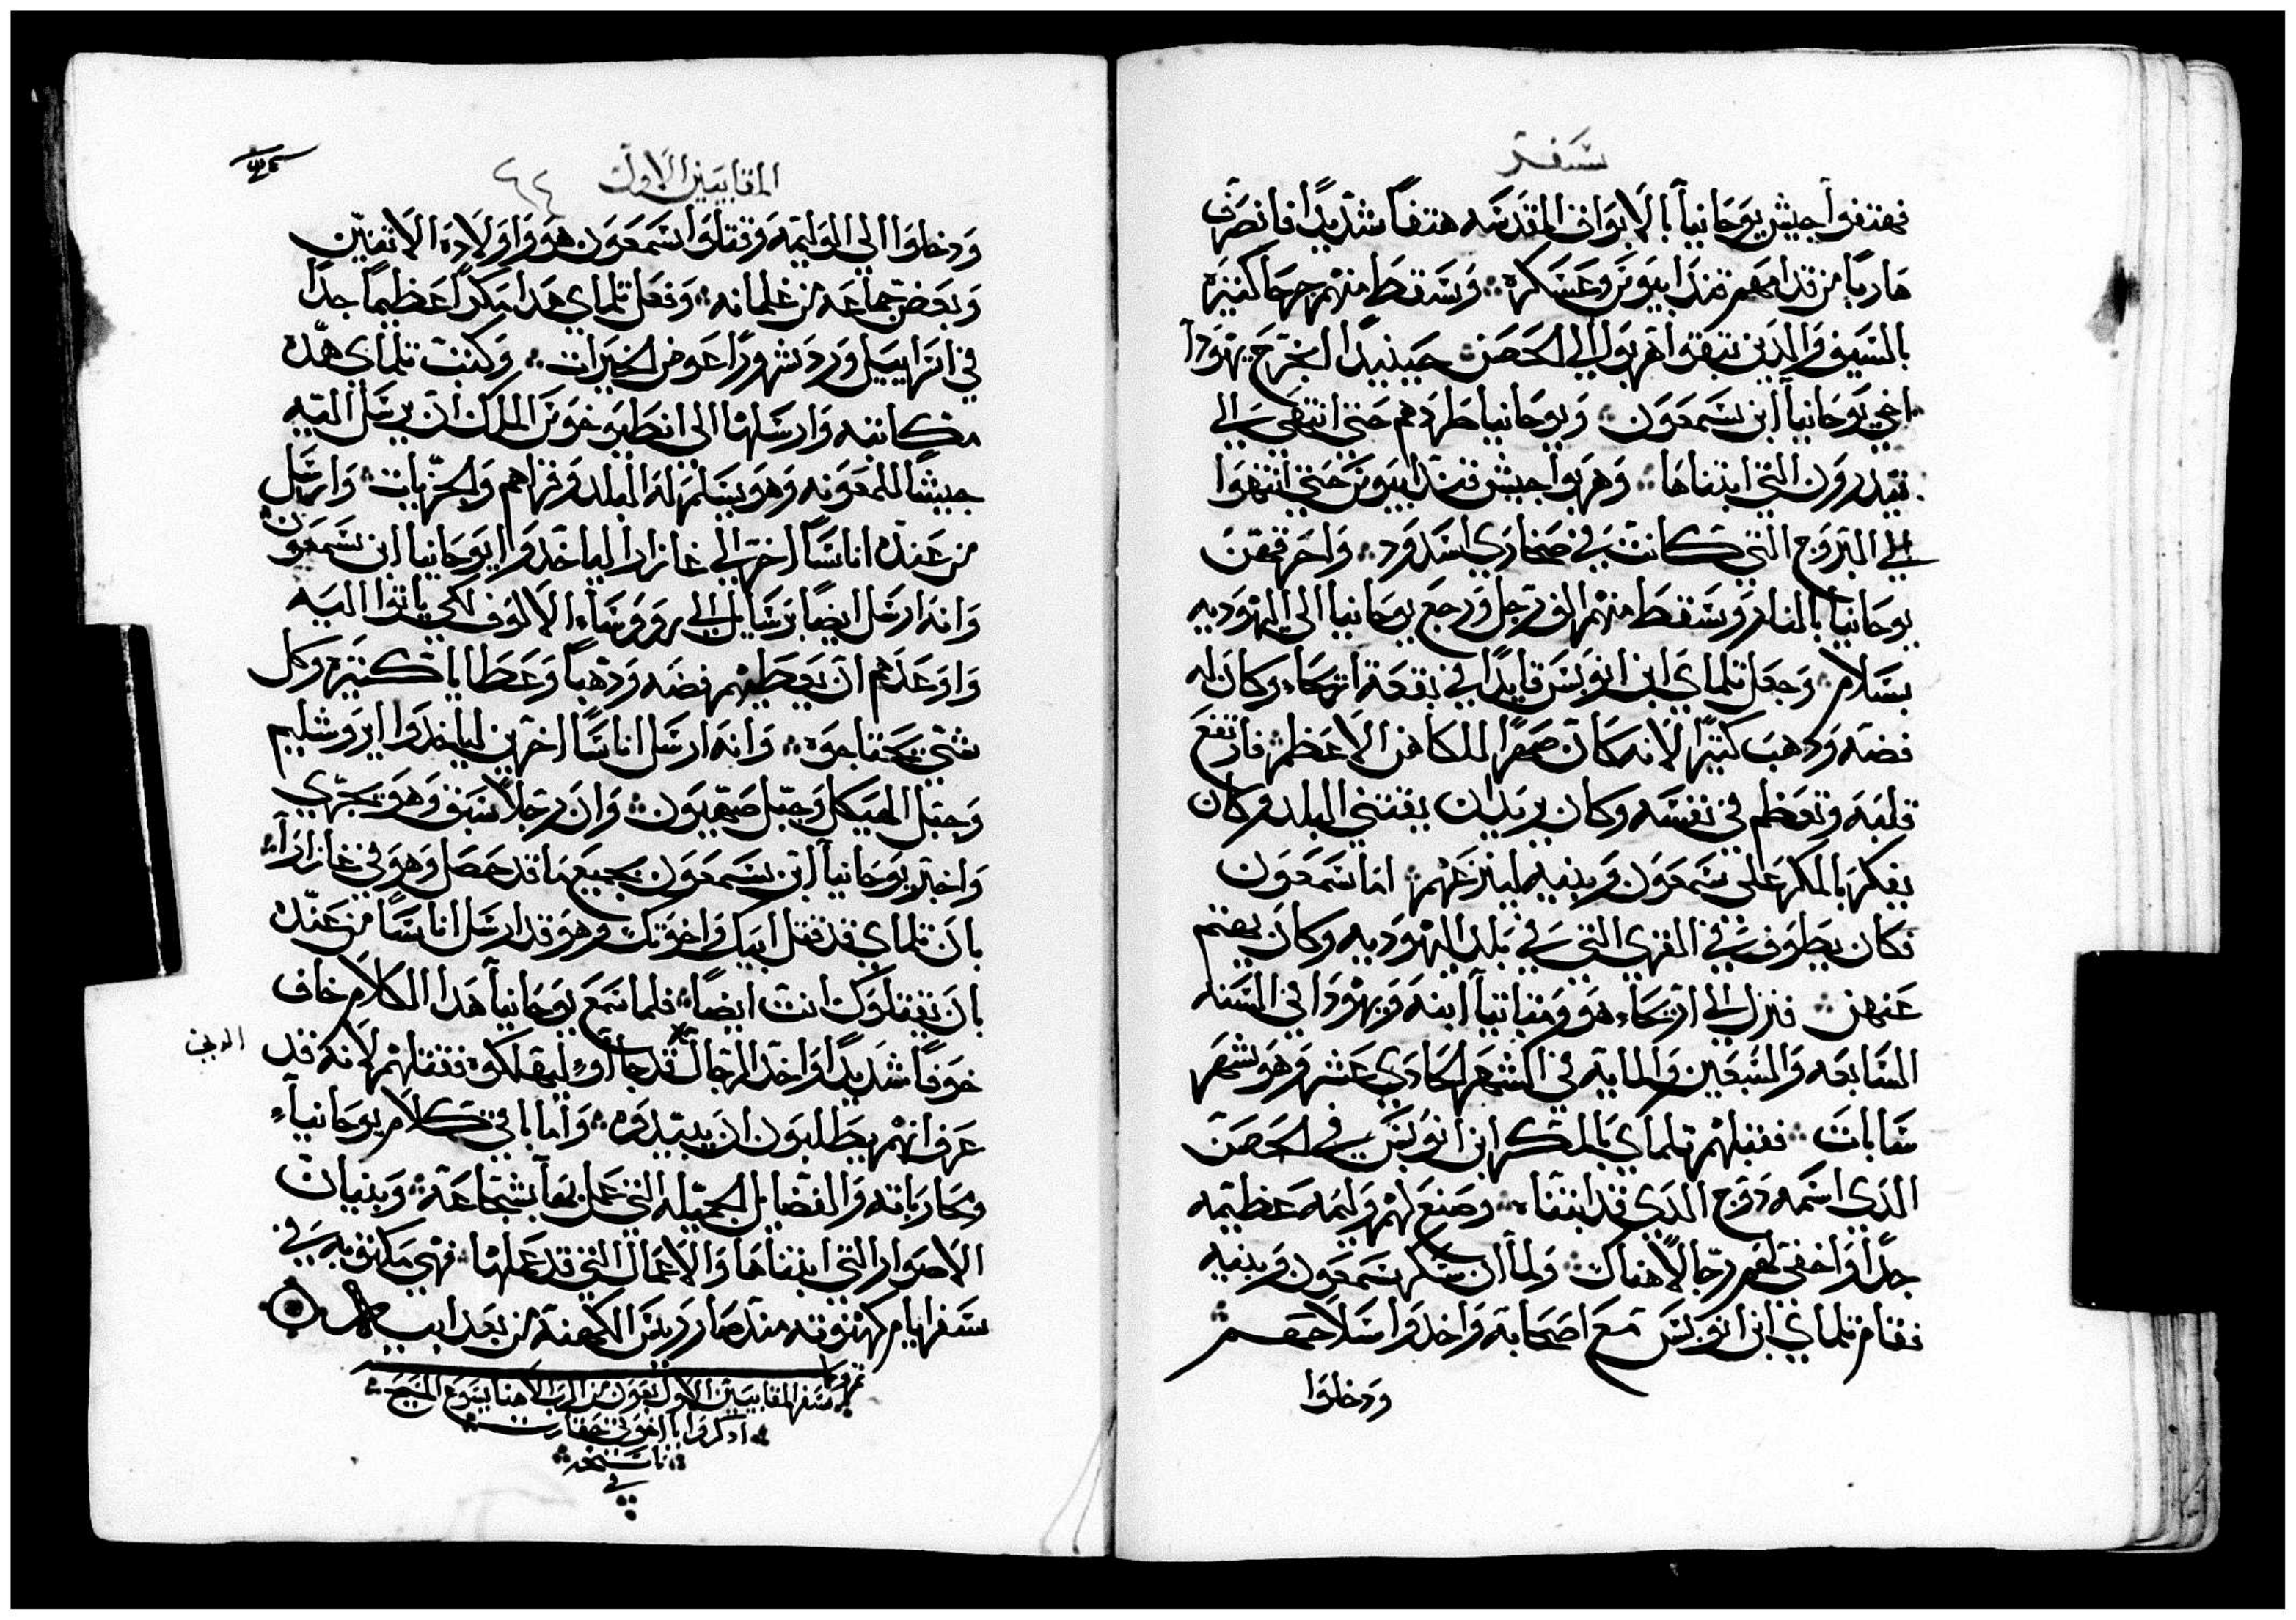 سفر
فهتفوا جيش يوحانيا بالابواق المقدسه هتفاً شديداً فانصرف
هارباً من قدامهم قندابيوس وعسكره ؞ وسقط منهم جرحا كثيره
بالسيف والذين تبقوا هربوا الي الحصن حينيداً انجرح يهودا
اخي يوحانيا ابن سمعون ؞ ويوحانيا طردهم حتي انتهي الي
قيدرون التي ابتناها ؞ وهربوا جيش قندابيوس حتي انتهوا
الي البروج التي كانت في صحاري اسدود ؞ واحرقهن
يوحانيا بالنار وسقط منهم الف رجل ورجع يوحانيا الي اليهوديه
بسلام ؞ وجعل تلماي ابن ابوبس قايداً في بقعة اريحاء وكان له
فضه ودهب كثيراً لانه كان صهراً للكاهن الاعظم ؞ فارتفع
قلبه وتعظم في نفسه وكان يريد ان يقتني البلد وكان
يفكر بالمكر علي سمعون وبنيه لينزعهم ؞ اما سمعون
فكان يطوف في القري التي في بلد اليهوديه وكان يهتم
عنهن ؞ فنزل الي اريحاء هو ومتاتيا ابنه ويهودا في السنه
السابعه والسبعين والمايه في الشهر الحادي عشر وهو شهر
سابات ؞ فقبلهم تلماي بالمكر ابن ابوبس في الحصن
الذي اسمه دوج الذي قد ابتناه ؞ وصنع لهم وليمه عظيمه
جداً واخفي لهم رجالاً هناك ؞ ولما ان سكر سمعون وبنيه
فقام تلماي ابن ابوبس مع اصحابه واخدوا سلاحهم
ودخلوا
المقابيين الاول
٦٤
ودخلوا الي الوليمه وقتلوا سمعون هو واولاده الاتنين
وبعض جماعه من غلمانه ؞ وفعل تلماي هدا مكراً عظيماً جداً
في اسراييل ورد شروراً عوض الخيرات ؞ وكتب تلماي هده
مكاتبه وارسلها الي انطيوخوس الملك ان يرسل اليه
جيشاً للمعونه وهو يسلم له البلد وقراهم والجزيات ؞ وارسل
من عنده اناساً اخر الي غازارا لياخدوا يوحانيا ابن سمعون
وانه ارسل ايضاً رسايل الي رووساء الالوف لكي ياتوا اليه
واوعدهم ان يعطيهم فضه ودهباً وعطايا كثيره وكل
شي يحتاجوه ؞ وانه ارسل اناساً اخرين لياخدوا ايروشليم
وجبل الهيكل وجبل صهيون ؞ وان رجلاً سبق وهو يجري
واخبر يوحانيا ابن سمعون بجميع ما قد حصل وهو في غازاراء
بان تلماي قد قتل ابيك واخوتك وهو قد ارسل اناساً من عنده
بان يقتلوك انت ايضاً ؞ فلما سمع يوحانيا هدا الكلام خاف
خوفاً شديداً واخد الرجال قد جاوء ليهلكوه فقتلهم لانه قد
الدين
عرف انهم يطلبون ان يبيدوه ؞ واما باقي كلام يوحانياء
ومحارباته والفضايل الجميله التي عمل بها بشجاعة ؞ وبنيان
الاصوار التي ابتناها والاعمال التي قد عملها ؞ فهي مكتوبه في
سفر ايام كهنوته مند صار رييس الكهنة من بعد ابيه
تم وكمل
سفر المقابيين الاول بعون من الرب الاهنا يسوع المسيح
ادكروا يا اخوتي حقارت
ناسخه